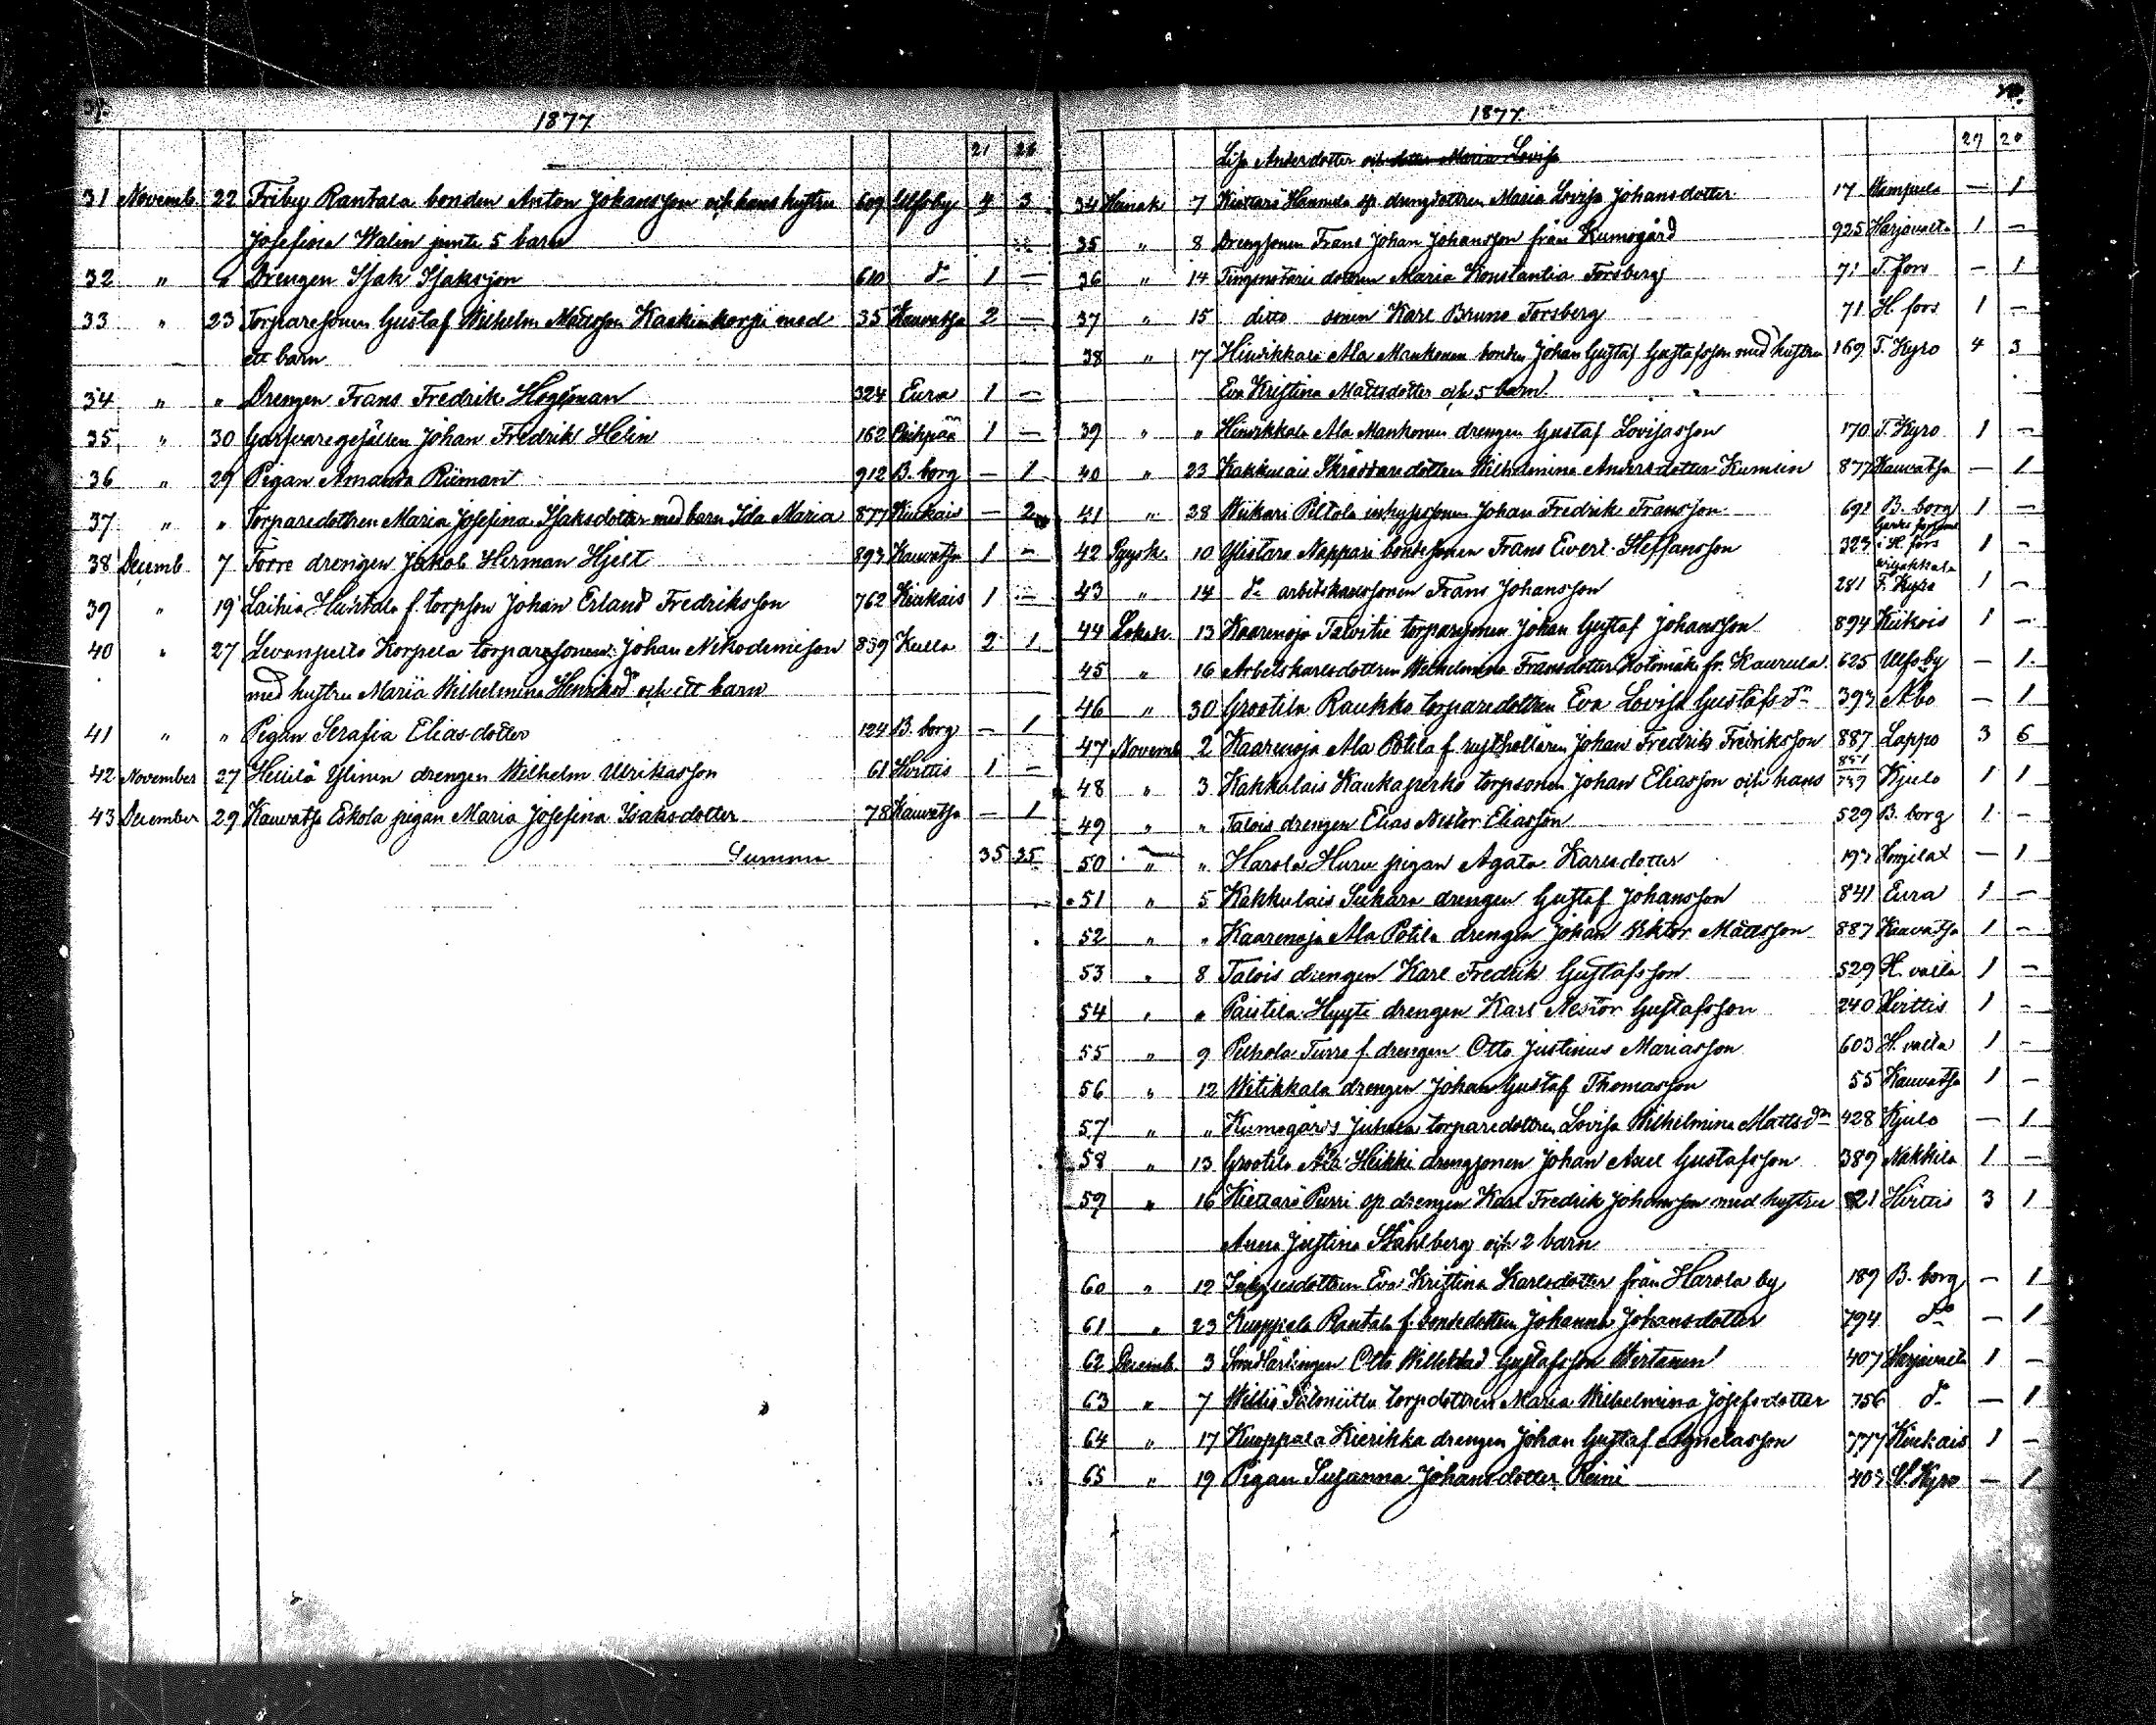 1877
21 26
31 Novemb. 22 Friby Rantala bonden Anton Johansson och hans hustru 609 Ulfsby 4 3
Josefina Walin jemte 5 barn
32 " " Drengen Isak Isaksson 610 do 1 —
33 " 23 Torparesonen Gustaf Wilhelm Mattsson Kaskinkorpi med 35 Kauvatsa 2 —
ett barn
34 " " Drengen Frans Fredrik Hägeman 324 Eura 1 —
35 " 30 Garfvaregesällen Johan Fredrik Helin 162 1 —
36 " 29 Pigan Amanda 912 B. borg — 1
37 " " Torparedottren Maria Josefina Isaksdotter med barn Ida Maria 877 Kiukais — 2
38 Decemb. 7 Torre drengen Jakob Herman Hjelt 893 Kauvatsa 1 —
39 " 19 Laihia f. torpson Johan Erland Fredriksson 762 Kiukais 1 —
40 " 27 Levanpelto Korpela torparesonen Johan Nikodemisson 839 Kulla 2 1
med hustru Maria Wilhelmina Henriksdr och ett barn
41 " " Pigan Serafia Eliasdotter 124 B. borg — 1
42 November 27 Heiulä Ylinen drengen Wilhelm Ulrikasson 61 Hvittis 1 —
43 December 29 Kauvatsa Eskola pigan Maria Josefina Isaksdotter 78 Kauvatsa — 1
Summa 35 25
1877.
27 20
Lisa Andersdotter och dotter Maria Lovisa
34 Heinäk. 7 Kiettare Hannula sp. drengdottren Maria Lovisa Johansdotter 17 — 1
35 " 8 Drengsonen Frans Johan Johansson från Kumogård 925 Harjavalta 1 —
36 " 14 Tingsnotarie dottren Maria Konstantia Forsberg 71 T. fors — 1
37 " 15 ditto sonen Karl Bruno Forsberg 71 H. fors 1 —
38 " 17 Hinrikkala Ala Mankonen bonden Johan Gustaf Gustafsson med hustru 169 T. Kyro 4 3
Eva Kristina Mattsdotter och 5 barn
39 " " Hinrikkala Ala Mankonen drengen Gustaf Lovisasson 170 T. Kyro 1 —
40 " 23 Kakkulais Skräddaredottren Wilhelmina Andersdotter Kumlin 877 Kauvatsa — 1
41 " 28 Wiikari Piltola inhysesonen Johan Fredrik Fransson 691 B. borg 1 —
42 Syysk. 10 Ylistaro Nappari bondesonen Frans Evert Steffansson 323 i H. fors 1 —
43 " 14 do arbetskarlssonen Frans Johansson 281 T. Kyro 1 —
44 Lokak. 13 Kaarenoja Talvitie torparesonen Johan Gustaf Johansson 894 Kiikois 1 —
45 " 16 Arbetskarlsdottren Wilhelmina Fransdotter Kotomäki fr. Kaurula 625 Ulfsby — 1
46 " 30 Grootila Raukko torparedottren Eva Lovisa Gustafsdr 393 Åbo — 1
47 Novemb. 2 Kaarenoja Ala Potila f. rusthållaren Johan Fredrik Fredriksson 887 Lappo 3 6
48 " 3 Kakkulais Kaukaperko torpsonen Johan Eliasson och hans 739 Kjulo 1 1
49 " " Talois drengen Elias Nestor Eliasson 529 B. borg 1 —
50 " " Harola Huru pigan Agata Karlsdotter 193 Honjilax — 1
51 " 5 Kakkulais Suhara drengen Gustaf Johansson 841 Eura 1 —
52 " " Kaarenoja Ala Potila drengen Johan Viktor Mattsson 887 Kauvatsa 1 —
53 " 8 Talois drengen Karl Fredrik Gustafsson 529 H. valla 1 —
54 " " Paistila Hyyti drengen Karl Nestor Gustafsson 240 Hvittis 1 —
55 " 9 Peltola Turre f. drengen Otto Justinus Mariasson 603 H. valla 1 —
56 " 12 Witikkala drengen Johan Gustaf Thomasson 55 Kauvatsa 1 —
57 " " Kumogårds Juhola torparedottren Lovisa Wilhelmina Mattsdr 428 Kjulo — 1
58 " 13 Grootila Ala Heikki drengsonen Johan Axel Gustafsson 389 Nakkila 1 —
59 " 16 Kiettare Purri sp drengen Karl Fredrik Johansson med hustru 821 Hvittis 3 1
Anna Justina Ståhlberg och 2 barn
60 " 12 Inhysesdottren Eva Kristina Karlsdotter från Harola by 189 B. borg — 1
61 " 23 Kuoppala Rantala f. bondedottren Johanna Johansdotter 794 do — 1
62 Decemb. 3 Smedlärlingen Otto Willehad Gustafsson Wirtanen 407 Harjavalta 1 —
63 " 7 Willio Saloniittu torpdottren Maria Wilhelmina Josefsdotter 756 do — 1
64 " 17 Kuoppala Kierikka drengen Johan Gustaf Agnetasson 777 Kiukais 1 —
65 " 19 Pigan Susanna Johansdotter Reini 403 Kyro — 1